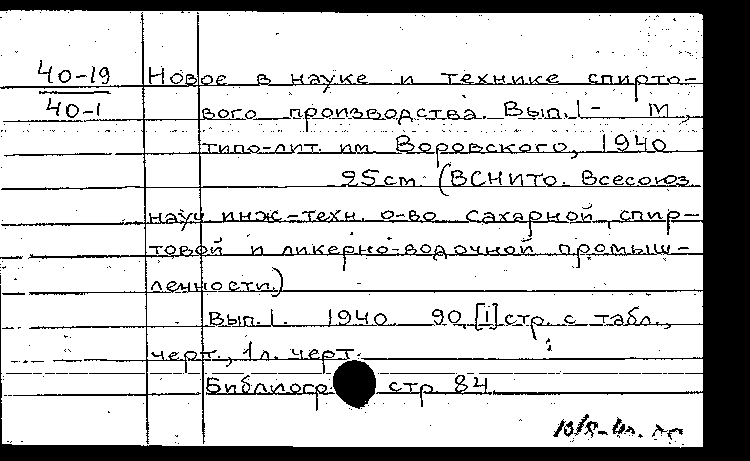 40-19
40-1
Новое в науке и технике спирто-
вого производства. Вып. I- М,
типо-лит. им. Воровского, 1940
25 см. (ВСНИТО. Всесоюз
науч инж-техн. о-во сахарной, спир-
товой и ликерно-водочной промыш-
ленности.)
Вып. I. 1940. 90, [1] стр. с табл.,
черт., 1 л. черт.
Библиогр стр 84